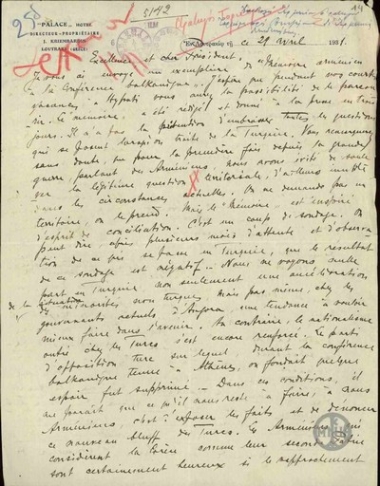 PALACE HOTEL
DIRECTEUR-PROPRIÉTAIRE
5192
le 21 avril 1931.
Excellence et cher Président,
Je vous ai envoyé un exemplaire du "Mémoire arménien
à la Conférence balkanique". J'espère que pendant vos courtes
vacances, à vous aurez la possibilité de le parcou-
rir. Le mémoire a été rédigé et donné à la presse en trois
jours. Il n'a pas la prétention d'embrasser toutes les questions
qui se posent lorsqu'on traite de la Turquie. Vous remarquerez
sans doute, que pour la première fois depuis la grande
guerre, parlant des Arméniens, nous avons évité de soule-
ver la légitime question territoriale, d'ailleurs inutile
dans les circonstances actuelles. On ne demande pas un
territoire, on le prend. Mais le Mémoire est inspiré
d'esprit de conciliation. C'est un coup de sondage. On
peut dire, après plusieurs mois d'attente et d'observa-
tion de ce qui se passe en Turquie, que le résultat
de ce sondage est négatif. Nous ne voyons nulle
part en Turquie non seulement une amélioration
de la situation
des minorités non turques, mais pas même, chez les
gouvernants actuels d'Angora, une tendance à vouloir
mieux faire dans l'avenir. Au contraire, le nationalisme
outré chez les Turcs s'est encore renforcé. Le parti
d'opposition turc sur lequel, durant la conférence
balkanique tenue à Athènes, on fondait quelque
espoir fut supprimé. Dans ces conditions, il
me paraît que ce qu'il nous reste à faire, à nous
Arméniens, c'est d'exposer les faits et de dénoncer
ce nouveau bluff des Turcs. Les Arméniens qui
considèrent la Grèce comme leur seconde patrie
sont certainement heureux si le rapprochement